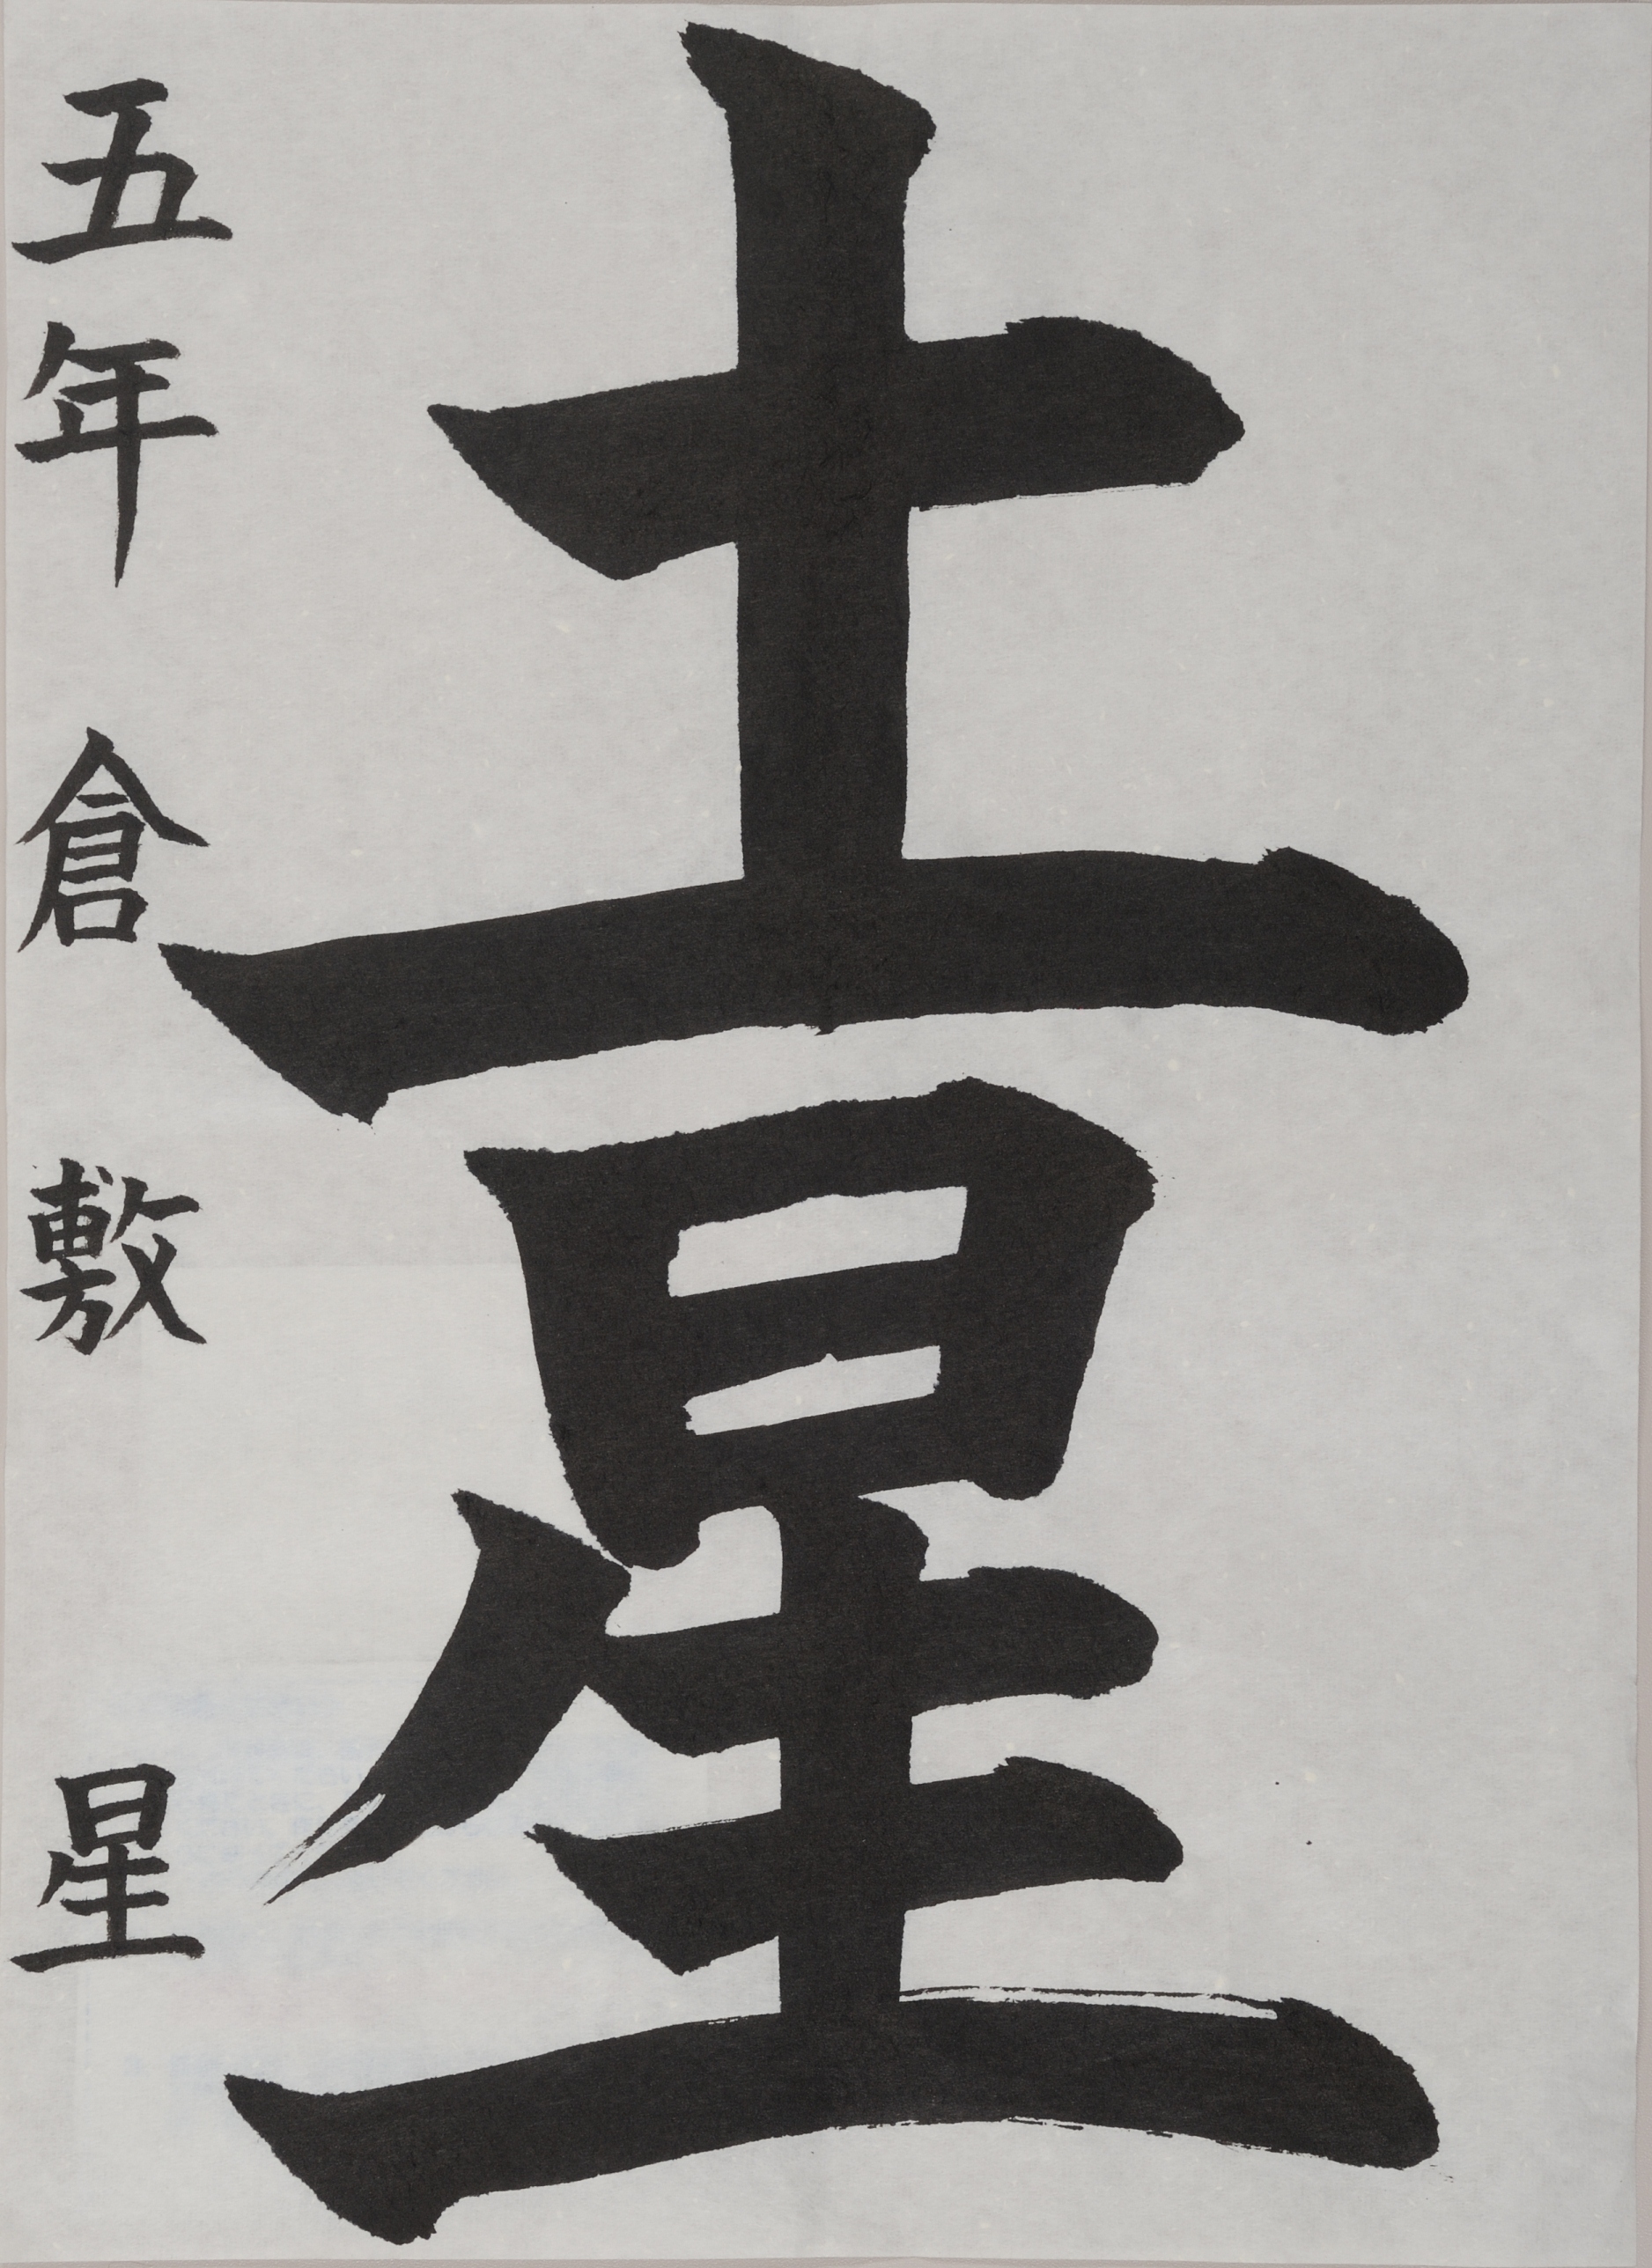 土星
五年 倉敷 星